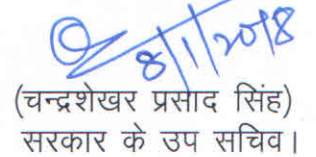 8/1/2018
(चन्द्रशेखर प्रसाद सिंह)
सरकार के उप सचिव।